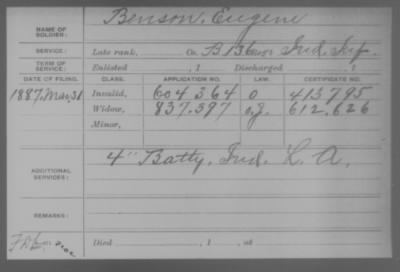 NAME OF SOLDIER: Benson, Eugene
SERVICE: Late rank, Co. B, 136 Reg't Ind. Inf.
TERM OF SERVICE: Enlisted , 1 Discharged , 1
DATE OF FILING. CLASS. APPLICATION NO. LAW. CERTIFICATE NO.
1887, Mar, 31 Invalid, 604.364 0 413795
Widow, 837.397 612.626
Minor,
ADDITIONAL SERVICES: 4" Batty, Ind. L. A.
REMARKS:
Died , 1 , at